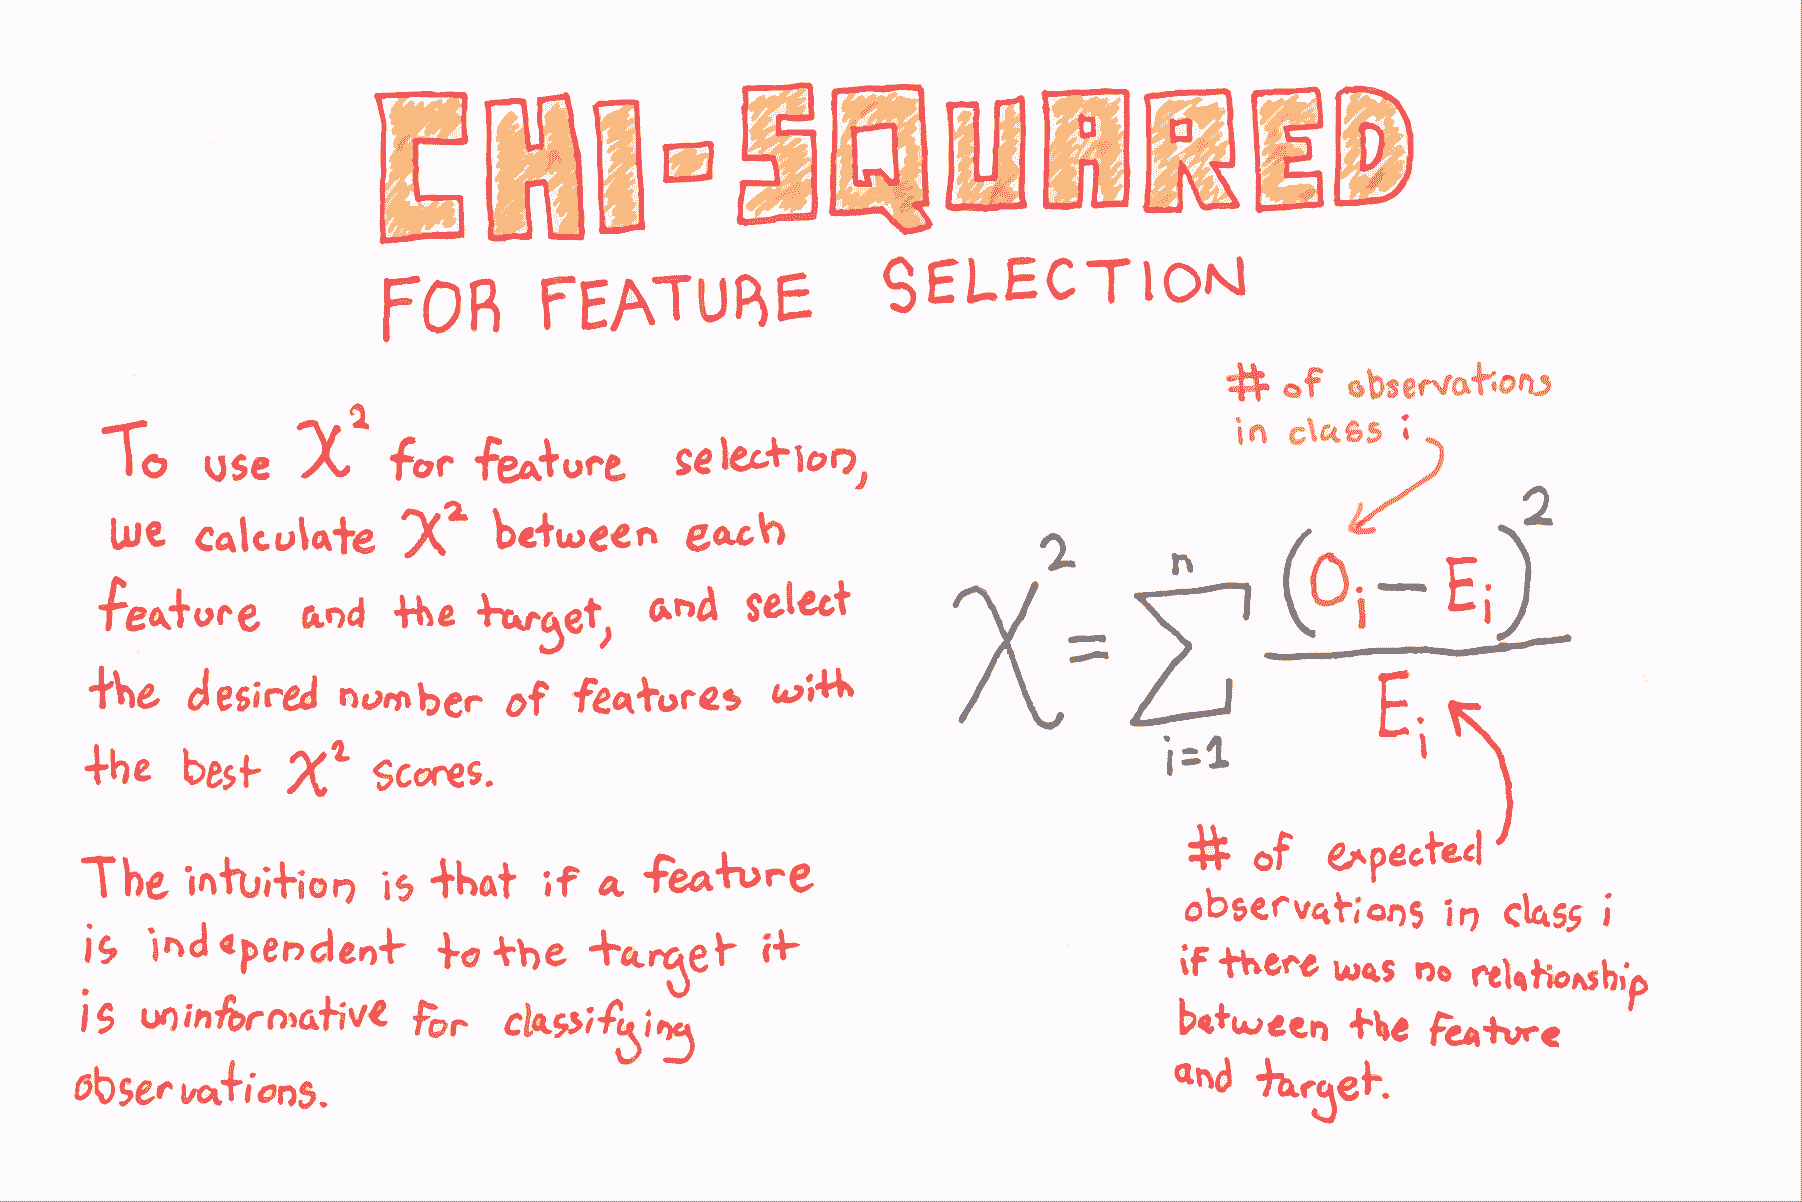 CHI-SQUARED
FOR FEATURE SELECTION
To use χ² for feature selection,
we calculate χ² between each
feature and the target, and select
the desired number of features with
the best χ² scores.
The intuition is that if a feature
is independent to the target it
is uninformative for classifying
observations.
# of observations
in class i
χ² = ∑ⁿᵢ₌₁ (Oᵢ – Eᵢ)² / Eᵢ
# of expected
observations in class i
if there was no relationship
between the feature
and target.